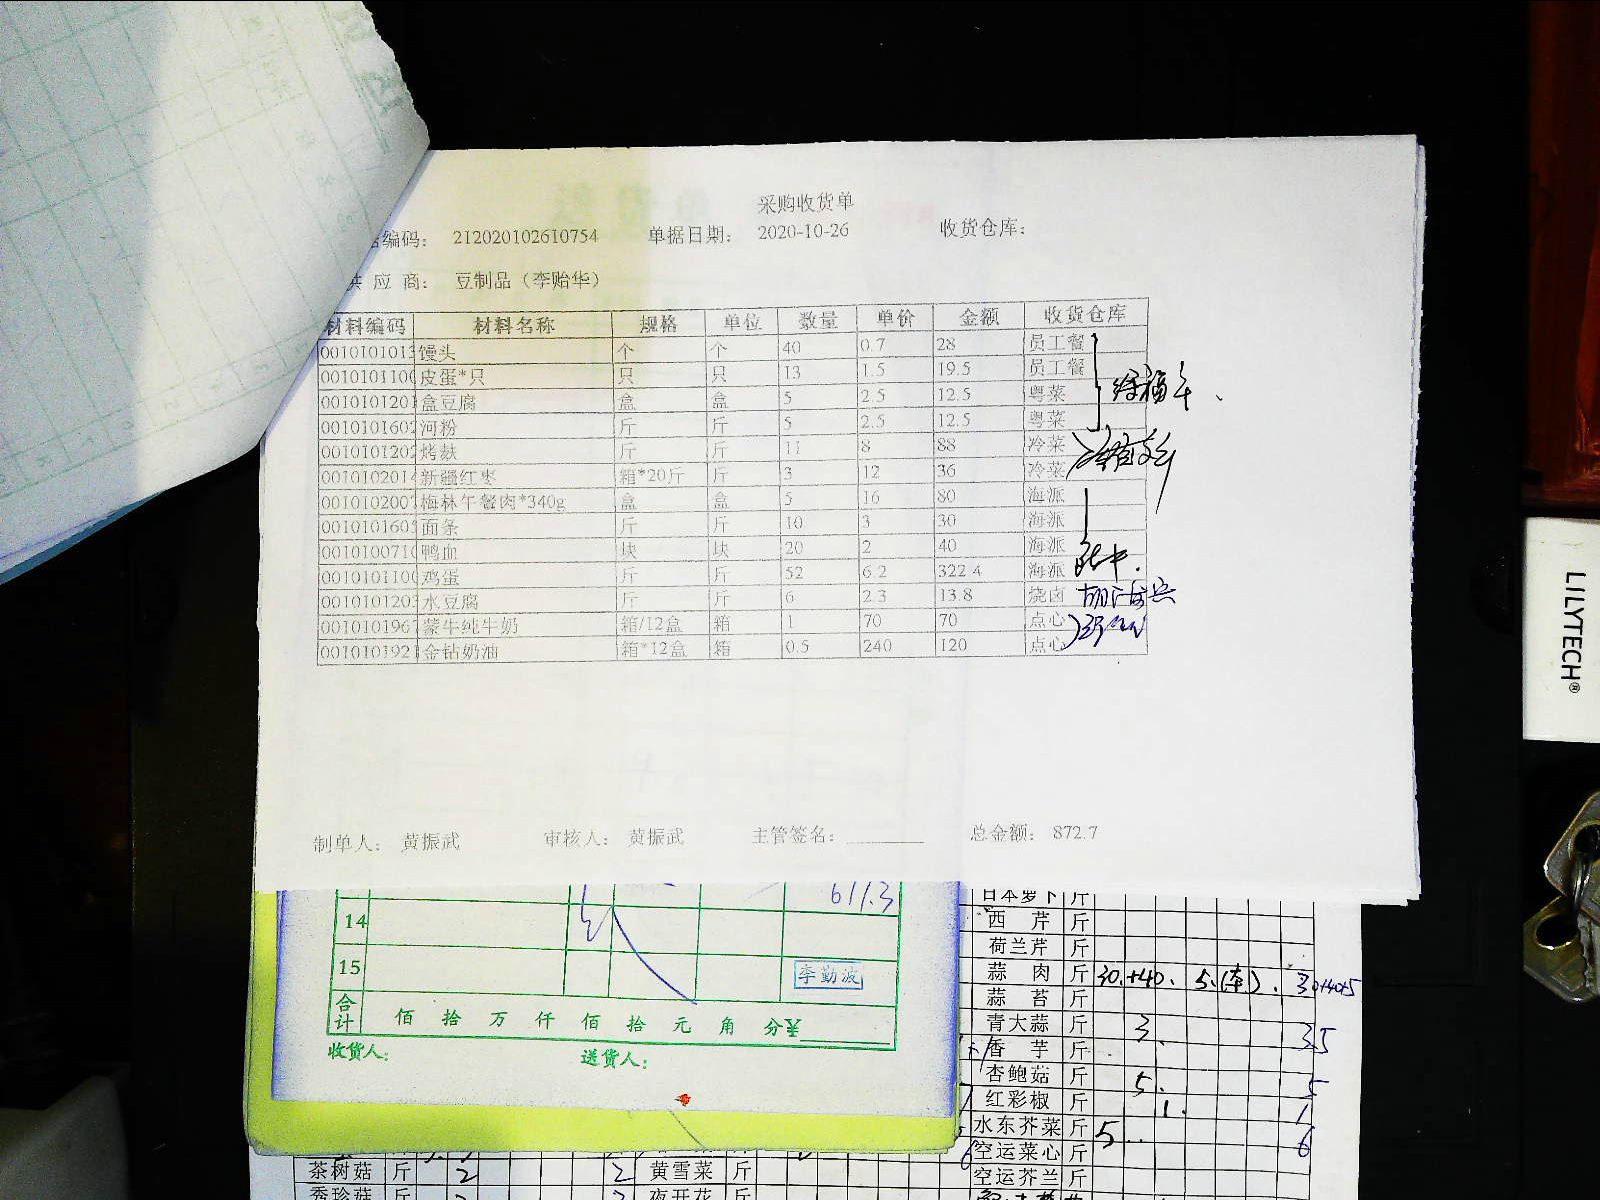 采购收货单
编码： 212020102610754 单据日期： 2020-10-26 收货仓库：
供 应 商： 豆制品（李贻华）
材料编码 材料名称 规格 单位 数量 单价 金额 收货仓库
001010101 馒头 个 个 40 0.7 28 员工餐
001010110 皮蛋*只 只 只 13 1.5 19.5 员工餐
001010120 盒豆腐 盒 盒 5 2.5 12.5 粤菜
001010160 河粉 斤 斤 5 2.5 12.5 粤菜
001010120 烤麸 斤 斤 11 8 88 冷菜
001010201 新疆红枣 箱*20斤 斤 3 12 36 冷菜
001010200 梅林午餐肉*340g 盒 盒 5 16 80 海派
001010160 面条 斤 斤 10 3 30 海派
001010071 鸭血 块 块 20 2 40 海派
001010110 鸡蛋 斤 斤 52 6.2 322.4 海派
001010120 水豆腐 斤 斤 6 2.3 13.8 烧卤
001010196 蒙牛纯牛奶 箱/12盒 箱 1 70 70 点心
001010192 金钻奶油 箱*12盒 箱 0.5 240 120 点心
制单人： 黄振武 审核人： 黄振武 主管签名： 总金额： 872.7
611.3
14
15 李勤波
合计 佰 拾 万 仟 佰 拾 元 角 分¥
收货人： 送货人：
日本萝卜 斤
西 芹 斤
荷兰芹 斤
蒜 肉 斤 30.+40. 5.(本). 30+40+5
蒜 苔 斤
青大蒜 斤 3. 35
香 芋 斤
杏鲍菇 斤 5. 5
红彩椒 斤 1. 1
水东芥菜 斤 5 6
空运菜心 斤
空运芥兰 斤
茶树菇 斤 2 2 黄雪菜 斤
秀珍菇 斤 夜开花 斤
LILYTECH®